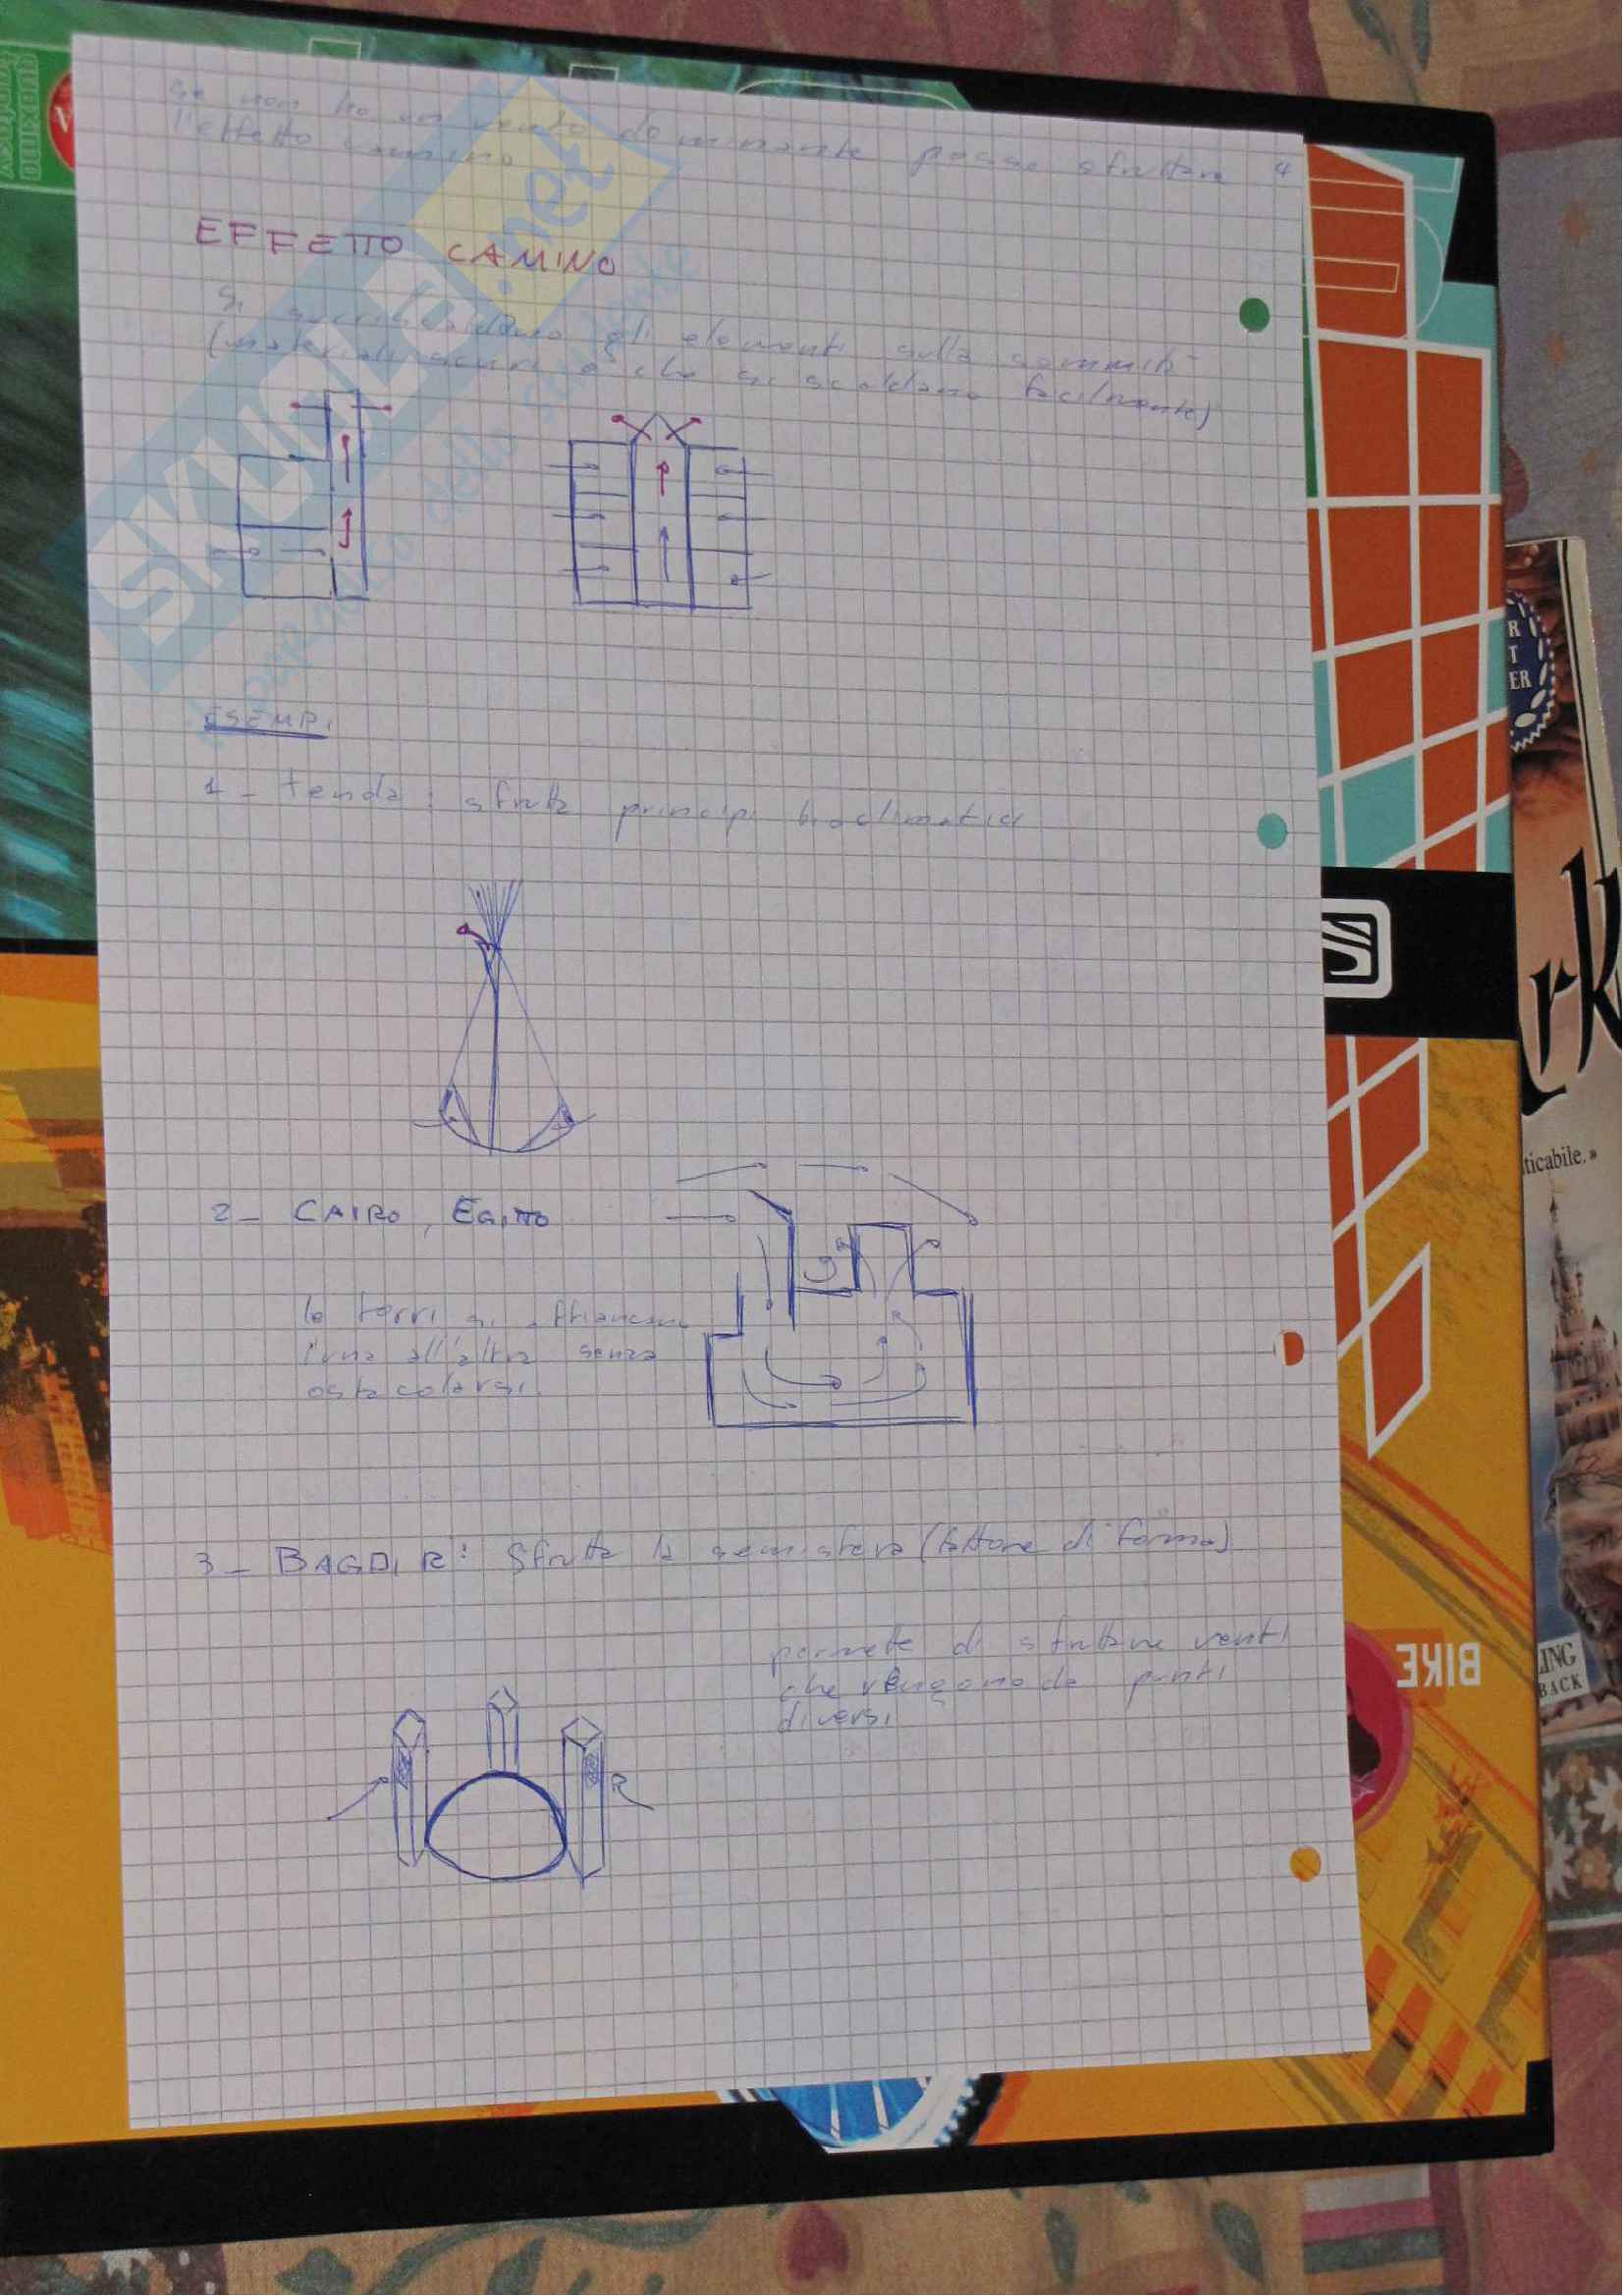 se non ho un vento dominante posso sfruttare 4
l'effetto camino
EFFETTO CAMINO
Si surriscaldano gli elementi sulla sommità
(materiali scuri e che si scaldano facilmente)
ESEMPI
1- tenda: sfrutta principi bioclimatici
2- CAIRO, EGITTO
le torri si affiancano
l'una all'altra senza
ostacolarsi.
3- BAGDIR: Sfrutta la semisfera (fattore di forma)
permette di sfruttare venti
che vengono da punti
diversi
SKUOLA.net
dello studente
BIKE
rk
ticabile.»
LING
BACK
R
T
ER